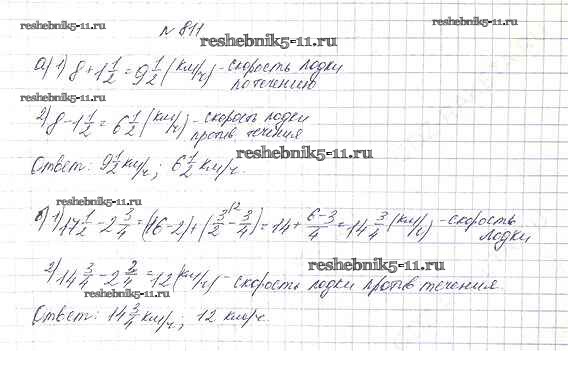 № 811
reshebnik5-11.ru
reshebnik5-11.ru
а) 1) 8 + 1 1/2 = 9 1/2 (км/ч) - скорость лодки
по течению
2) 8 - 1 1/2 = 6 1/2 (км/ч) - скорость лодки
против течения
reshebnik5-11.ru
Ответ: 9 1/2 км/ч; 6 1/2 км/ч.
reshebnik5-11.ru
б) 1) 17 1/2 - 2 3/4 = (16 - 2) + (3/2 (2 - 3/4) = 14 + (6-3)/4 = 14 3/4 (км/ч) - скорость
лодки
reshebnik5-11.ru
2) 14 3/4 - 2 3/4 = 12 (км/ч) - скорость лодки против течения
reshebnik5-11.ru
Ответ: 14 3/4 км/ч; 12 км/ч.